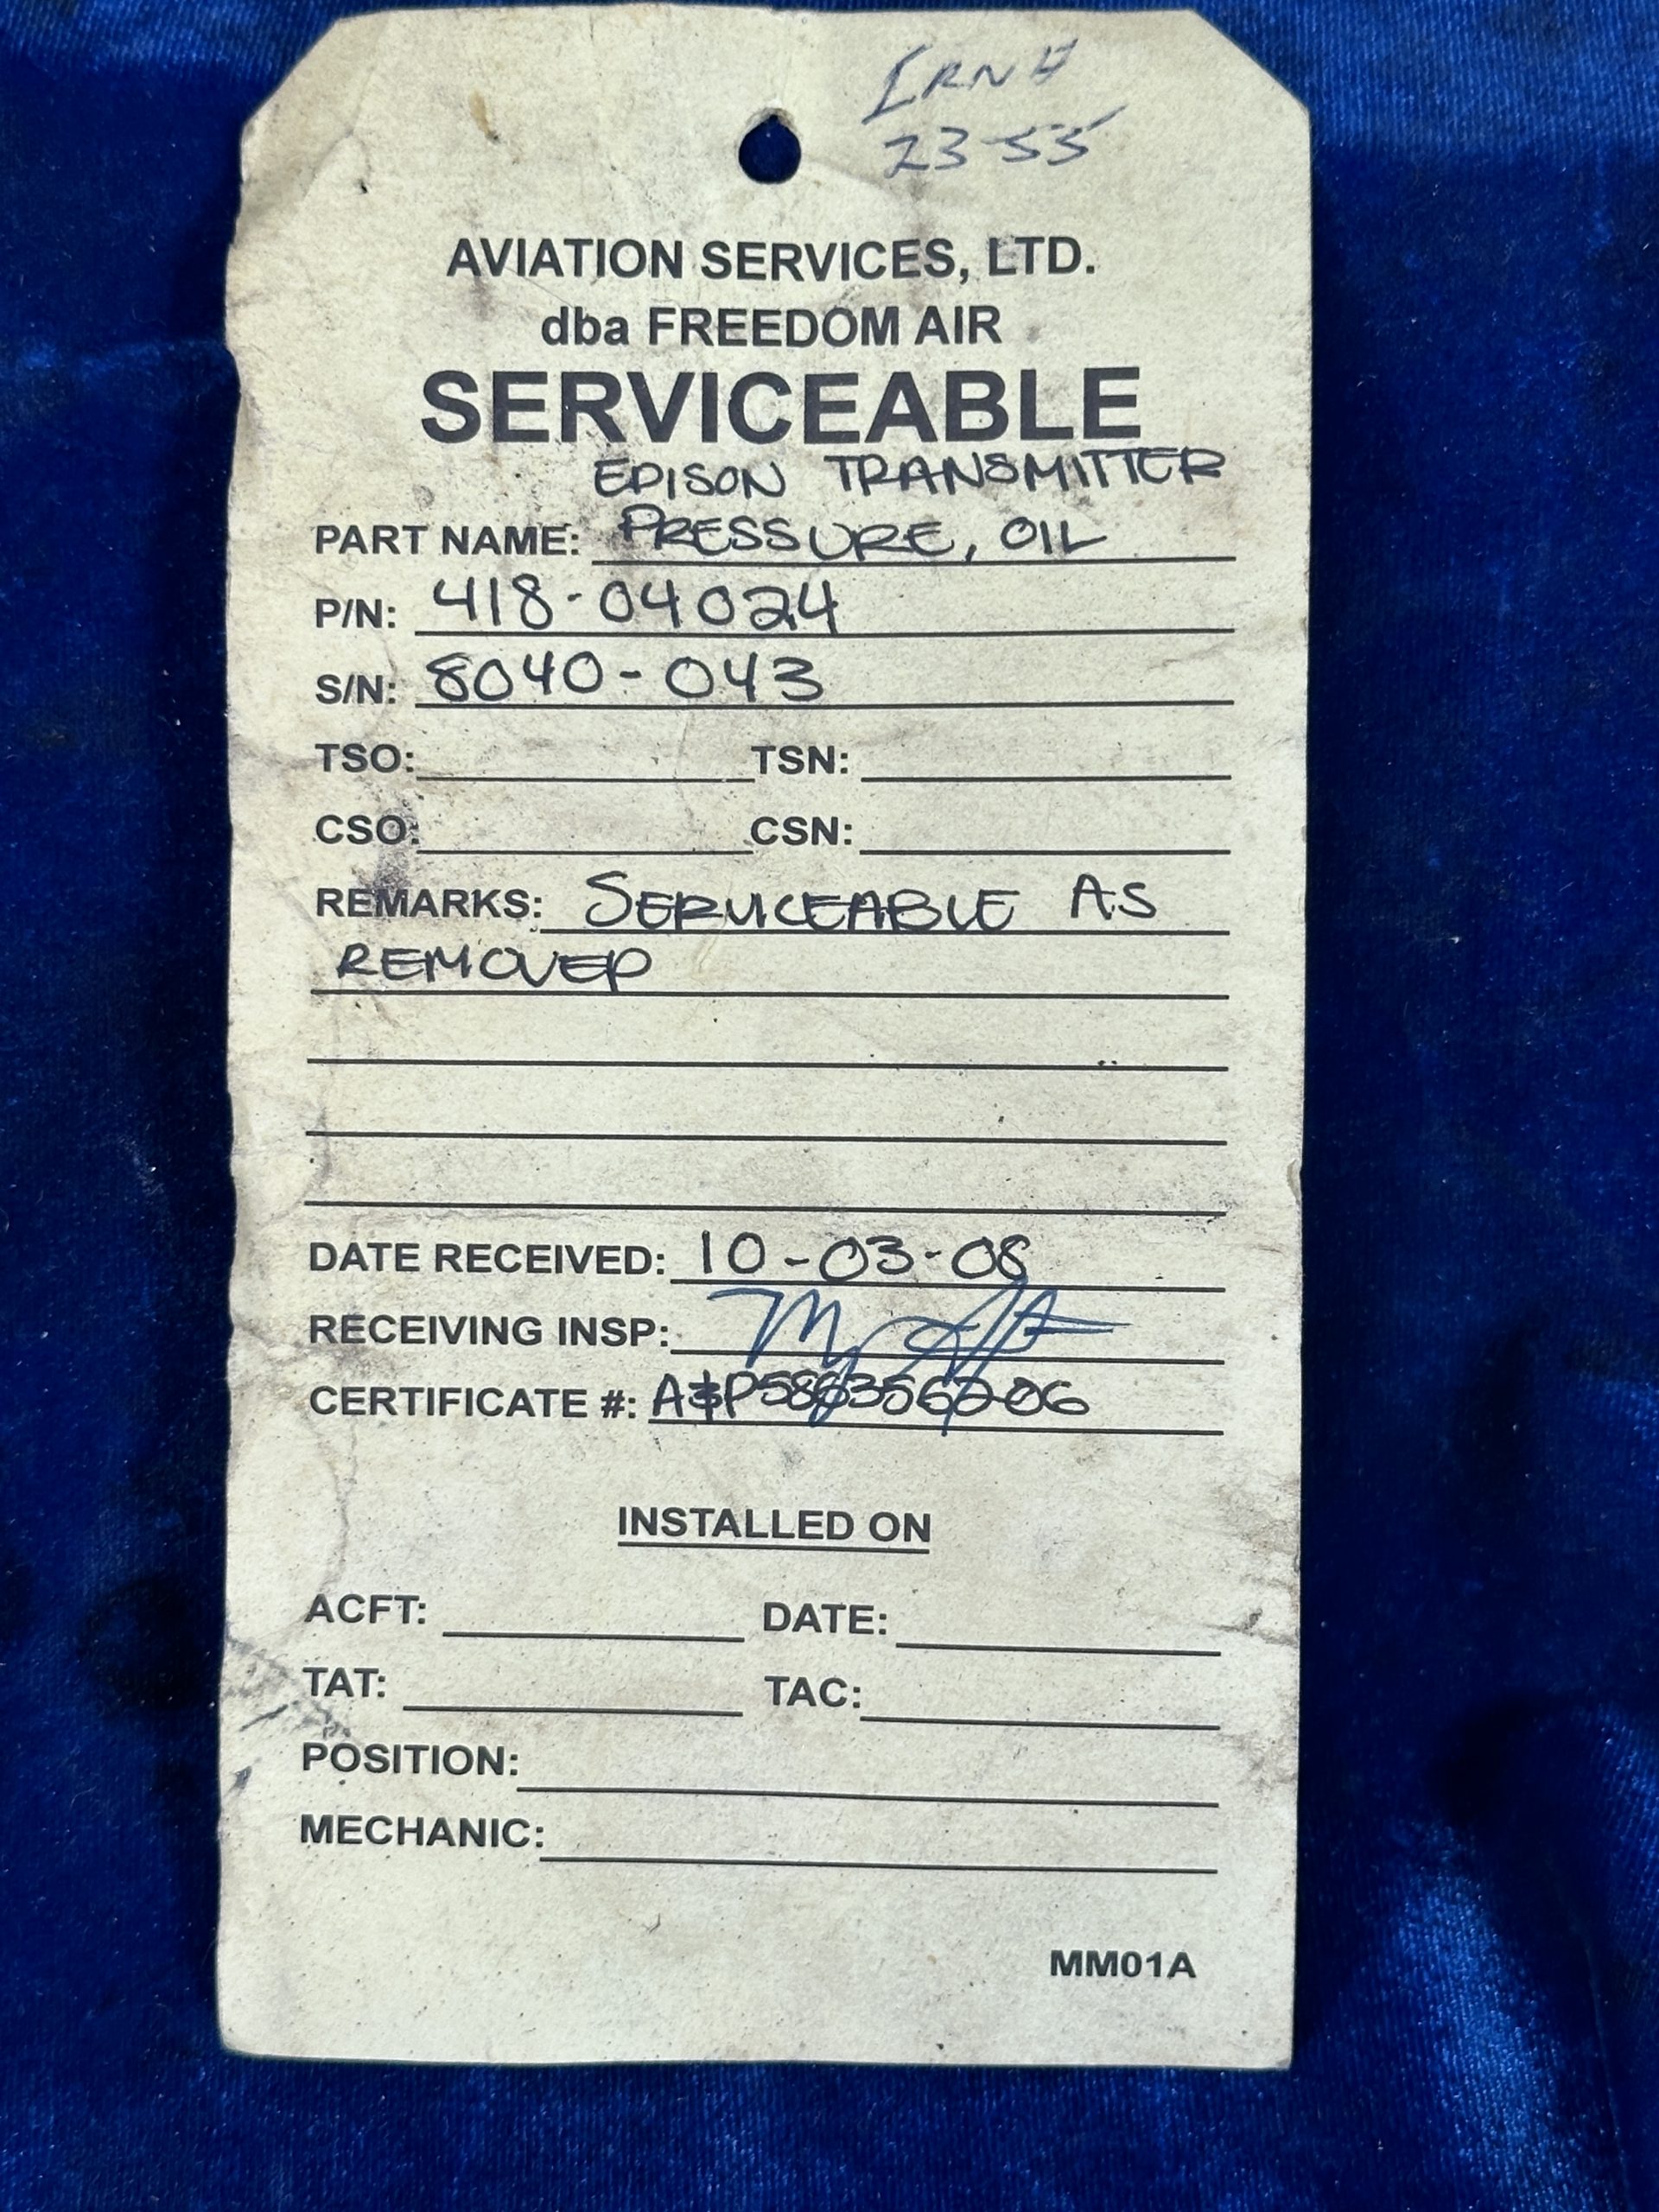 IRN#
23-55
AVIATION SERVICES, LTD.
dba FREEDOM AIR
SERVICEABLE
EDISON TRANSMITTER
PART NAME: PRESSURE, OIL
P/N: 418-04024
S/N: 8040-043
TSO: TSN:
CSO: CSN:
REMARKS: SERVICEABLE AS
REMOVED
DATE RECEIVED: 10-03-08
RECEIVING INSP:
CERTIFICATE #:
INSTALLED ON
ACFT: DATE:
TAT: TAC:
POSITION:
MECHANIC:
MM01A